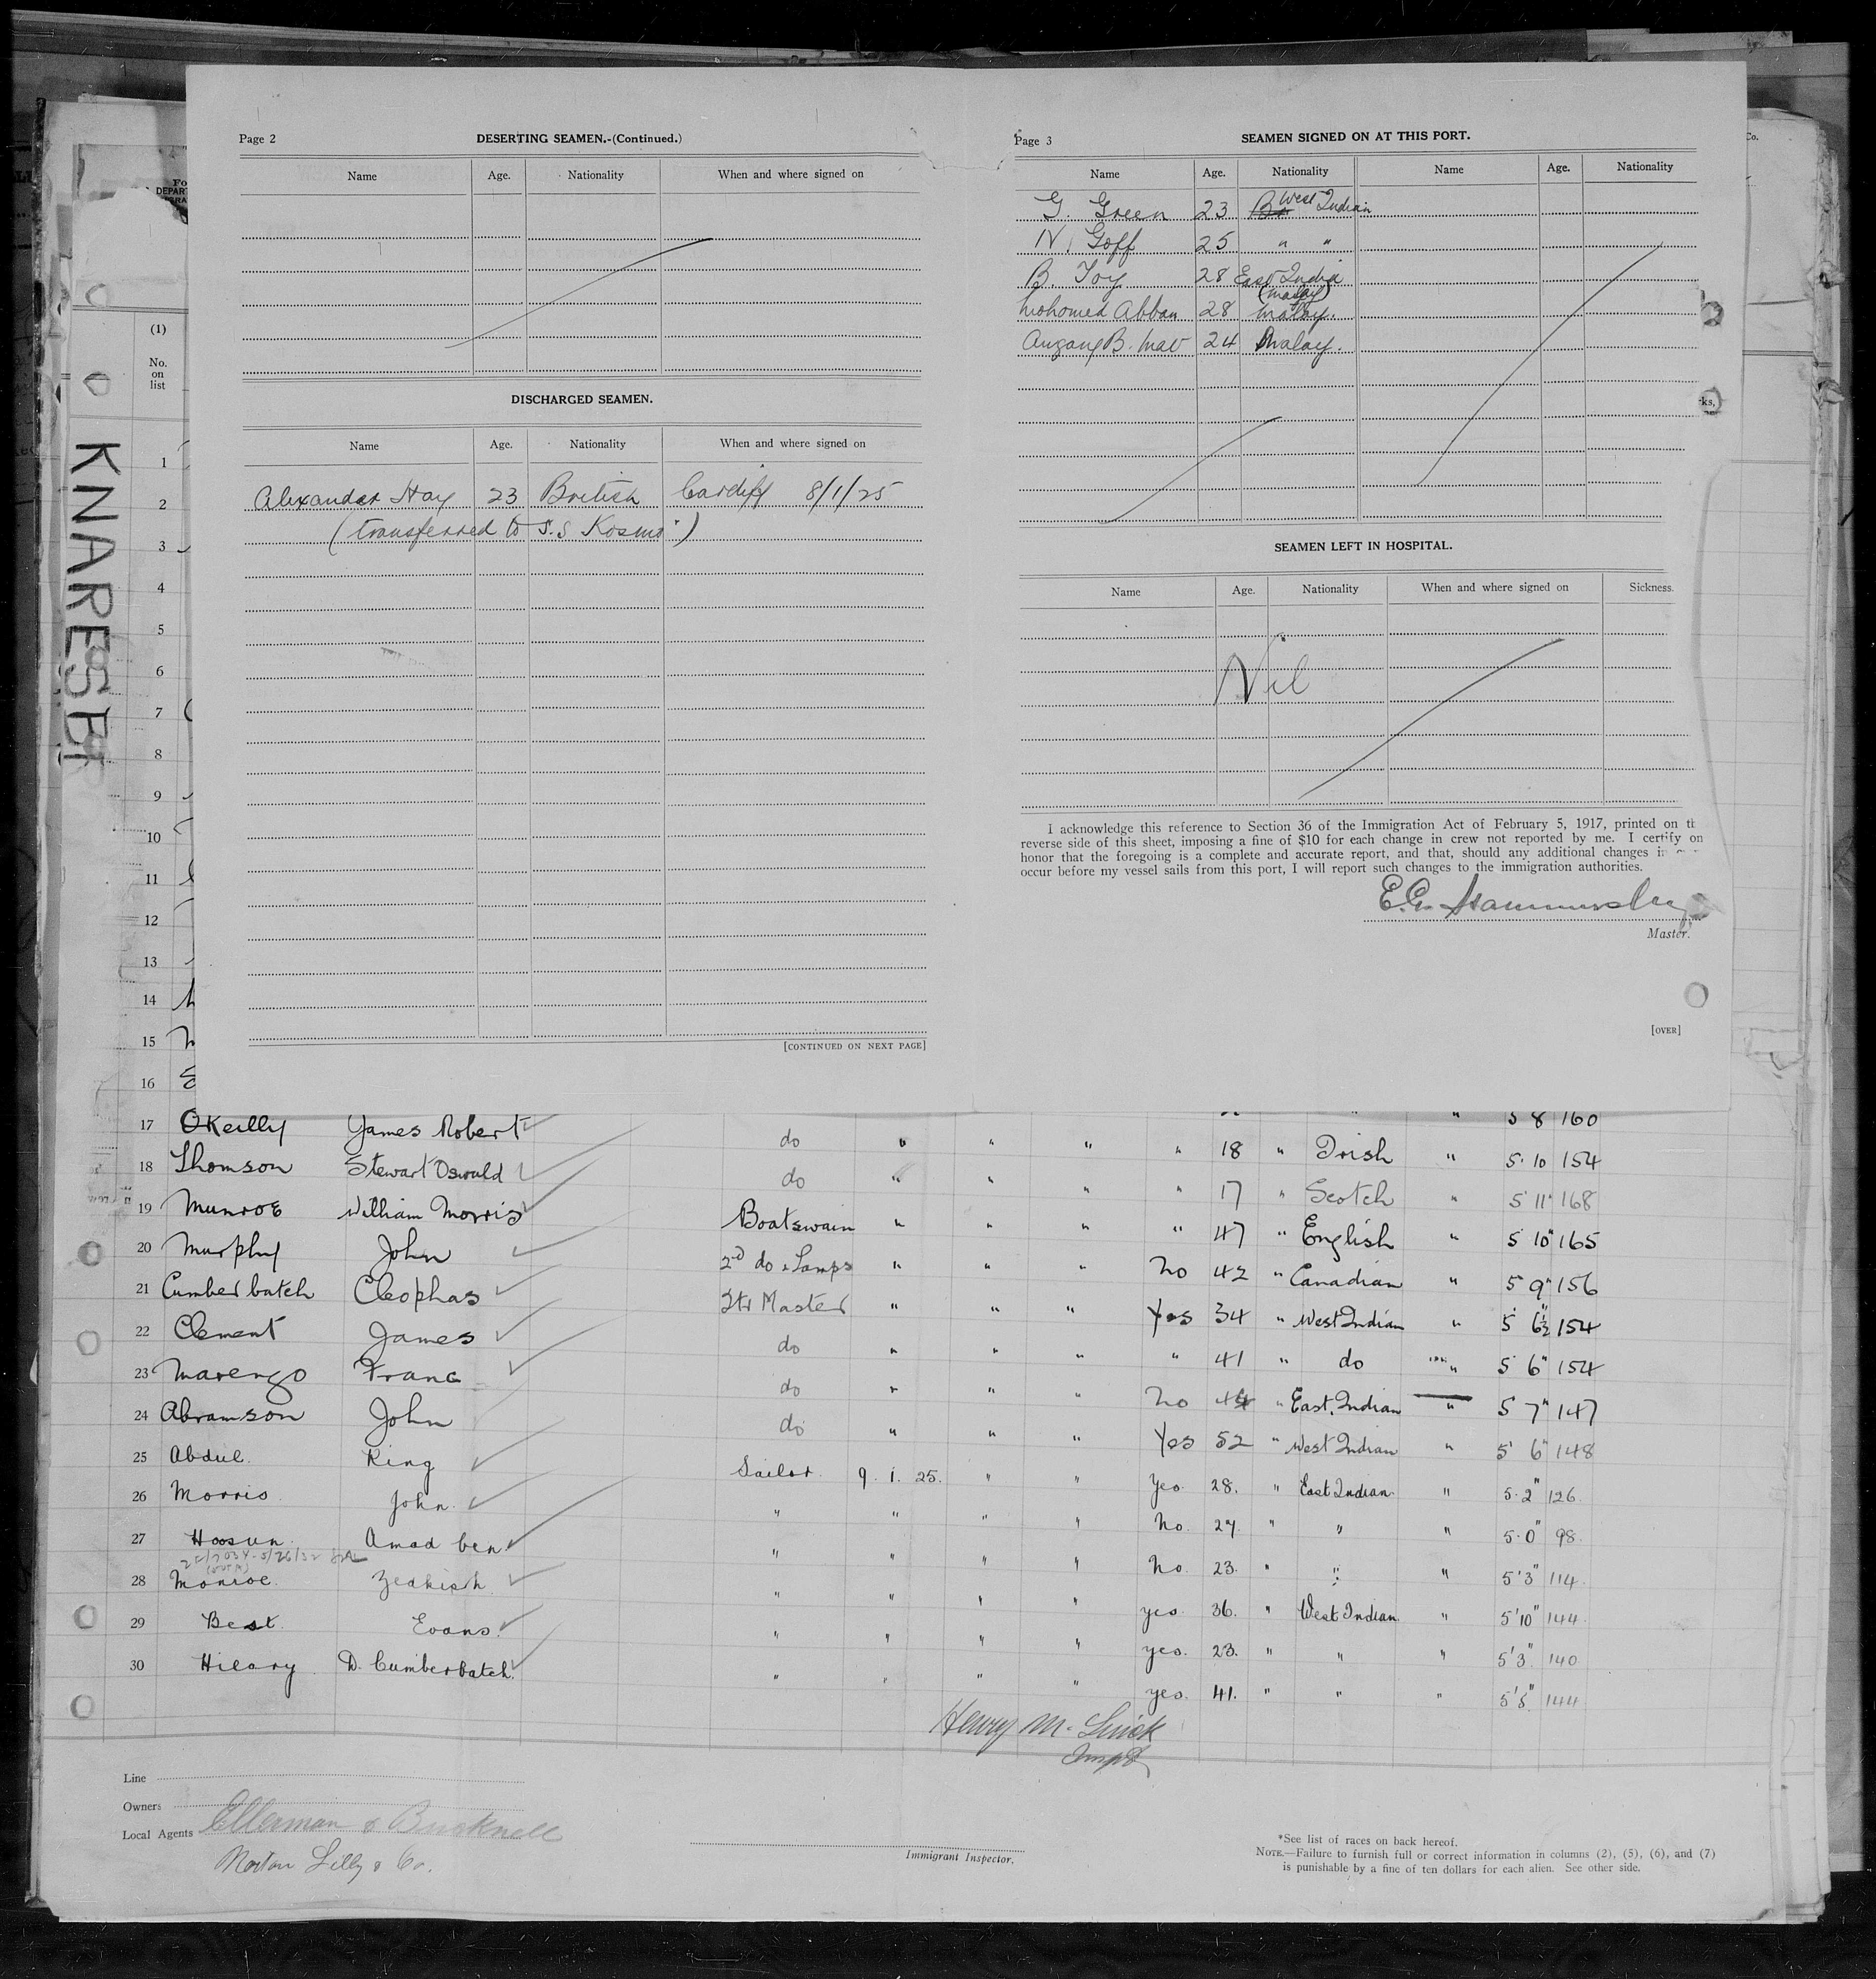 Page 2
DESERTING SEAMEN.-(Continued.)
Name Age. Nationality When and where signed on
DISCHARGED SEAMEN.
Name Age. Nationality When and where signed on
Alexander Hay 23 British Cardiff 8/1/25
(transferred to S.S Kosmo)
[CONTINUED ON NEXT PAGE]
Page 3
SEAMEN SIGNED ON AT THIS PORT.
Name Age. Nationality Name Age. Nationality
G. Green 23 West Indian
N. Goff 25 " "
B. Toy 28 East India
(malay)
Mohomed Abban 28 malay.
B. 24 Malay.
SEAMEN LEFT IN HOSPITAL.
Name Age. Nationality When and where signed on Sickness.
Nil
I acknowledge this reference to Section 36 of the Immigration Act of February 5, 1917, printed on
reverse side of this sheet, imposing a fine of $10 for each change in crew not reported by me. I certify on
honor that the foregoing is a complete and accurate report, and that, should any additional changes in
occur before my vessel sails from this port, I will report such changes to the immigration authorities.
Master.
[OVER]
KNARESB
(1)
No.
on
list
1
2
3
4
5
6
7
8
9
10
11
12
13
14
15
16
" " 5 8 160
17 OKeilly James Robert do " " " " 18 " Irish " 5. 10 154
18 Thomson Stewart Oswald do " " " " 17 " Scotch " 5 11" 168
19 Munroe William Morris Boatswain " " " " 47 " English " 5 10" 165
20 Murphy John 2nd do & Lamps " " " No 42 " Canadian " 5 9" 156
21 Cumberbatch Cleophas Qtr Master " " " Yes 34 " West Indian " 5 6½" 154
22 Clement James do " " " " 41 " do " 5 6" 154
23 Marengo Franc do " " " No 44 " East. Indian " 5 7" 147
24 Abramson John do " " " Yes 52 " West Indian " 5' 6" 148
25 Abdul. King Sailor. 9. 1. 25. " " Yes. 28. " East Indian. " 5.2" 126.
26 Morris. John. " " " " No. 27. " " " 5.0" 98.
27 Hoosun. Amad ben " " " " No. 23. " " " 5'3" 114.
28 Monroe. Zedkish. " " " " yes. 36. " West Indian. " 5'10" 144.
29 Best. Evans. " " " " yes. 23. " " " 5'3". 140
30 Hilary. D. Cumberbatch. " " " " yes. 41. " " " 5'5". 144
Henry M.
Line
Owners Ellerman & Bucknell
Local Agents
Norton Lilly & Co.
Immigrant Inspector.
*See list of races on back hereof.
NOTE.—Failure to furnish full or correct information in columns (2), (5), (6), and (7)
is punishable by a fine of ten dollars for each alien. See other side.